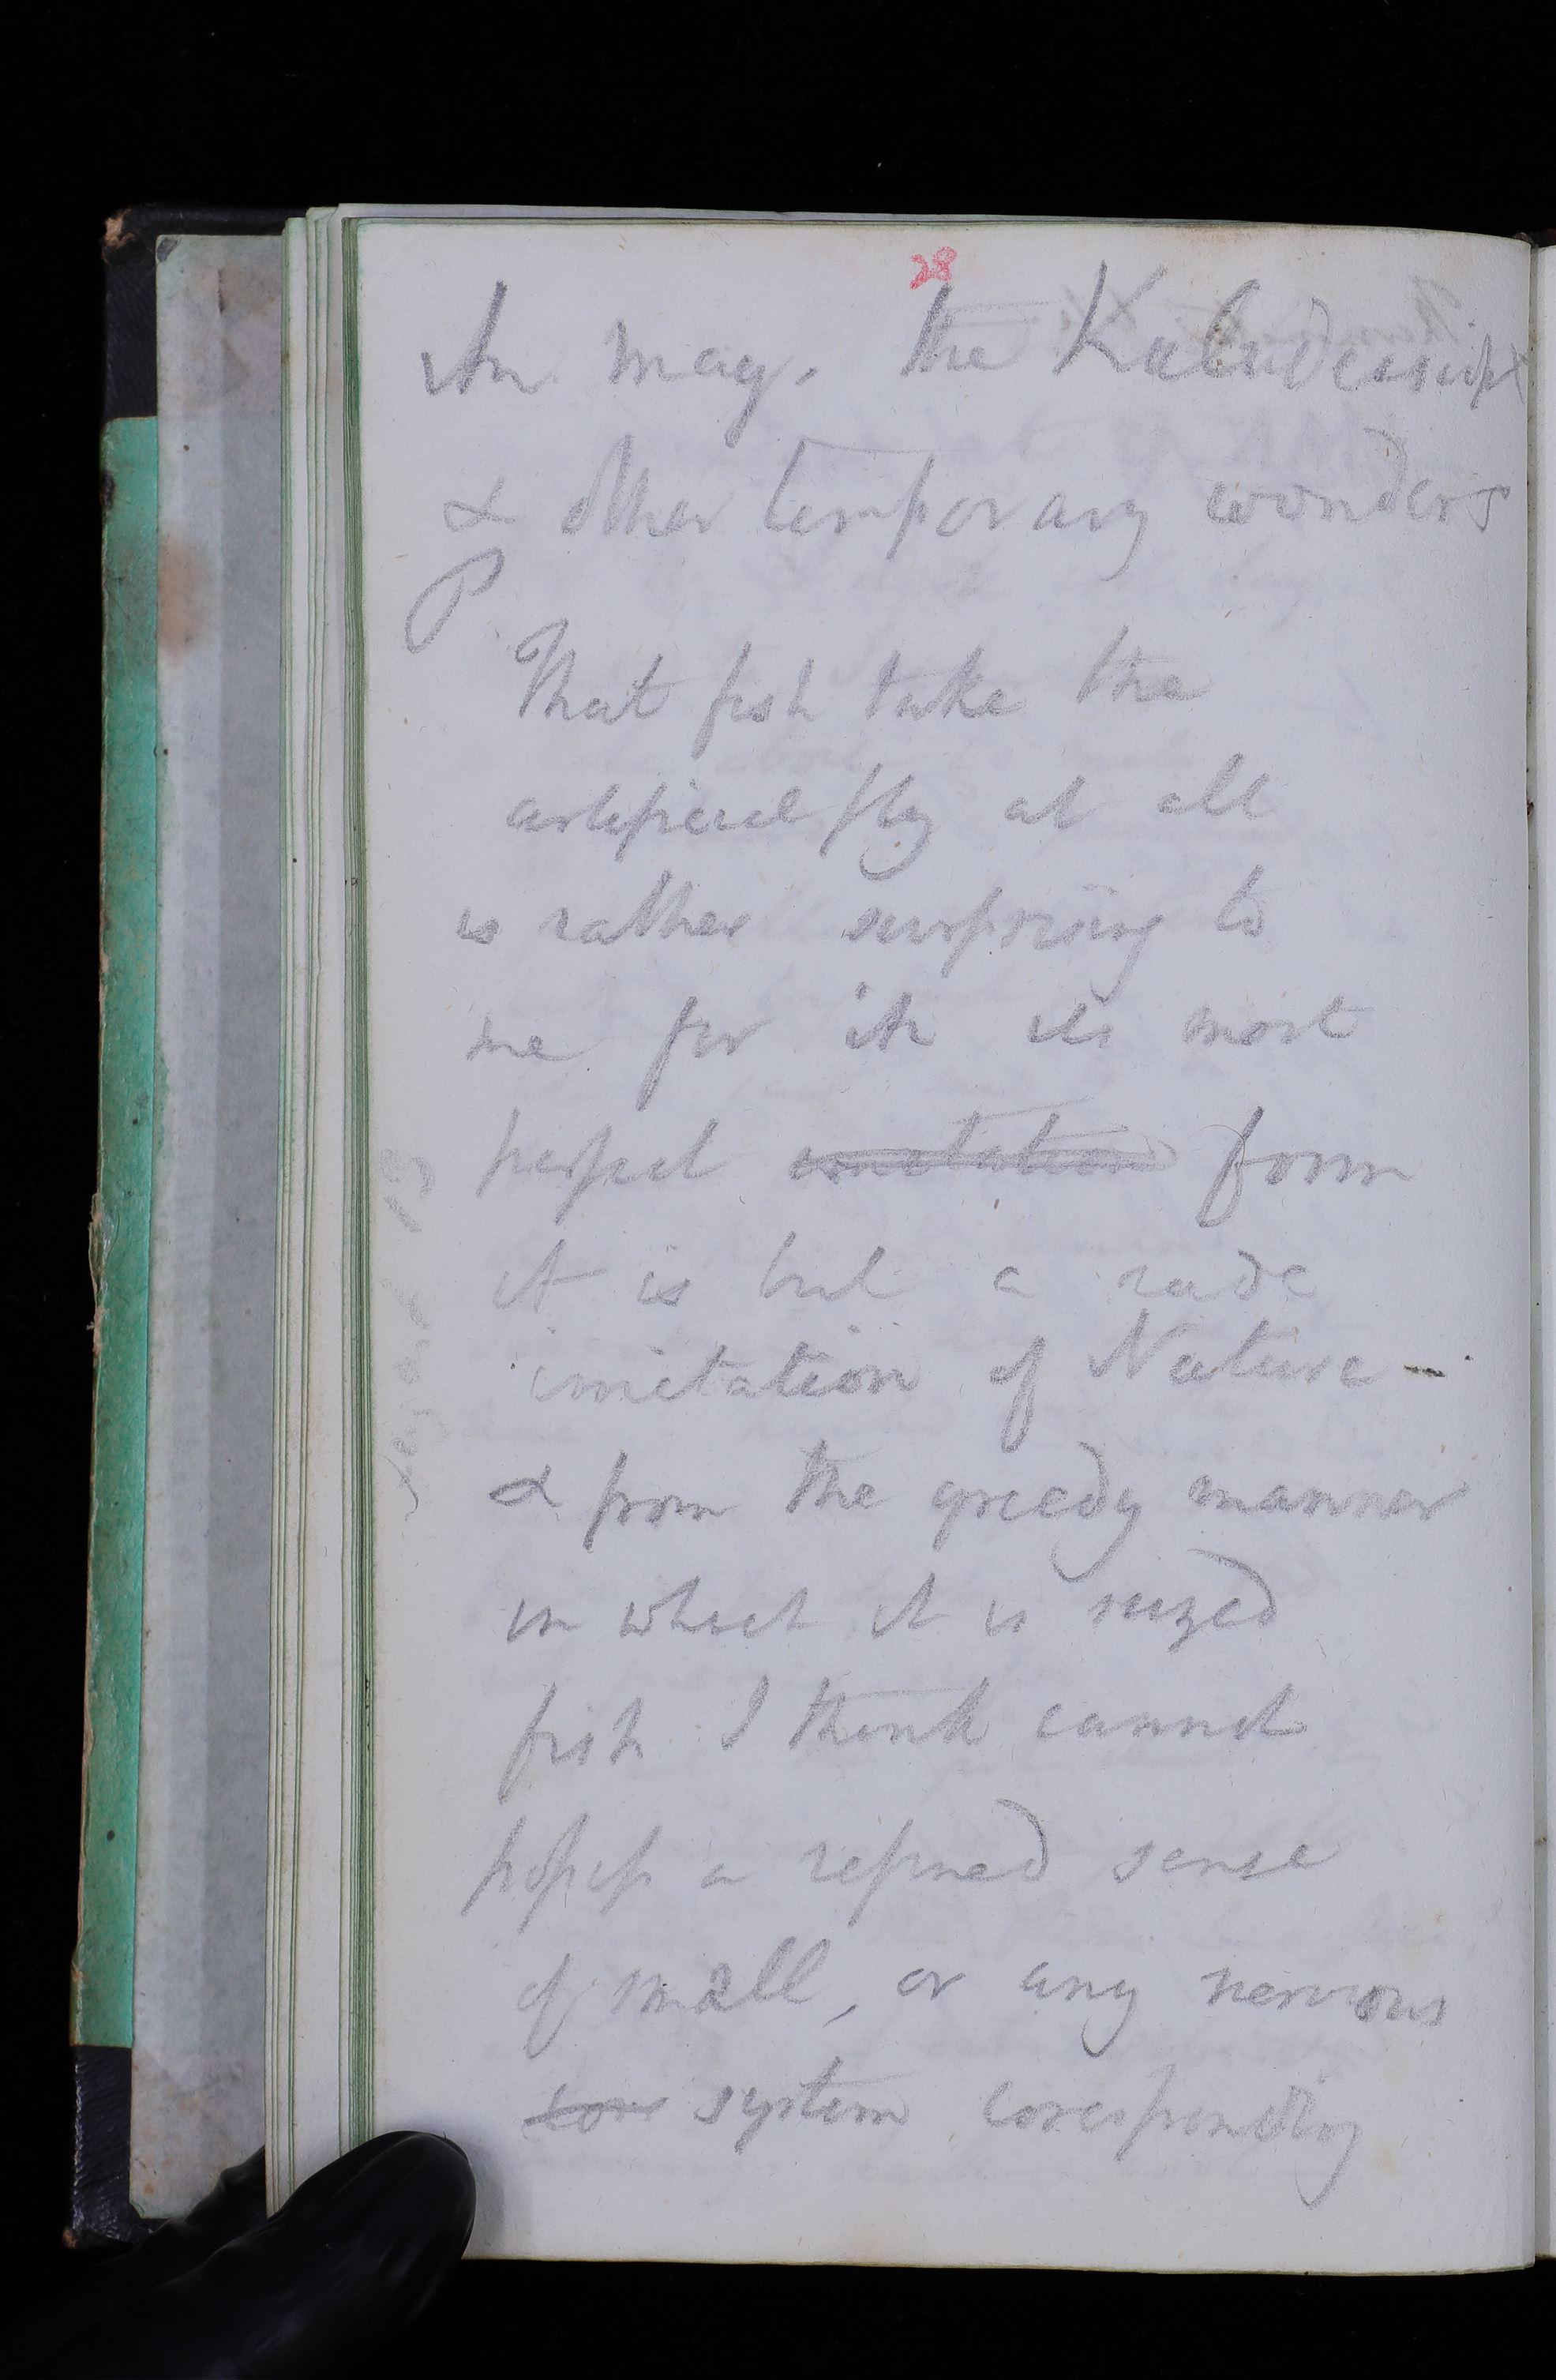 28
An. mag. the Kaleidescope
& other temporary wonders
P
That fish take the
artificial fly at all
is rather surprising to
me for in its most
perfect imitation form
it is but a rude
imitation of Nature -
& from the greedy manner
in which it is seized
fish I think cannot
possess a refined sense
of smell, or any nervous
cors system corresponding